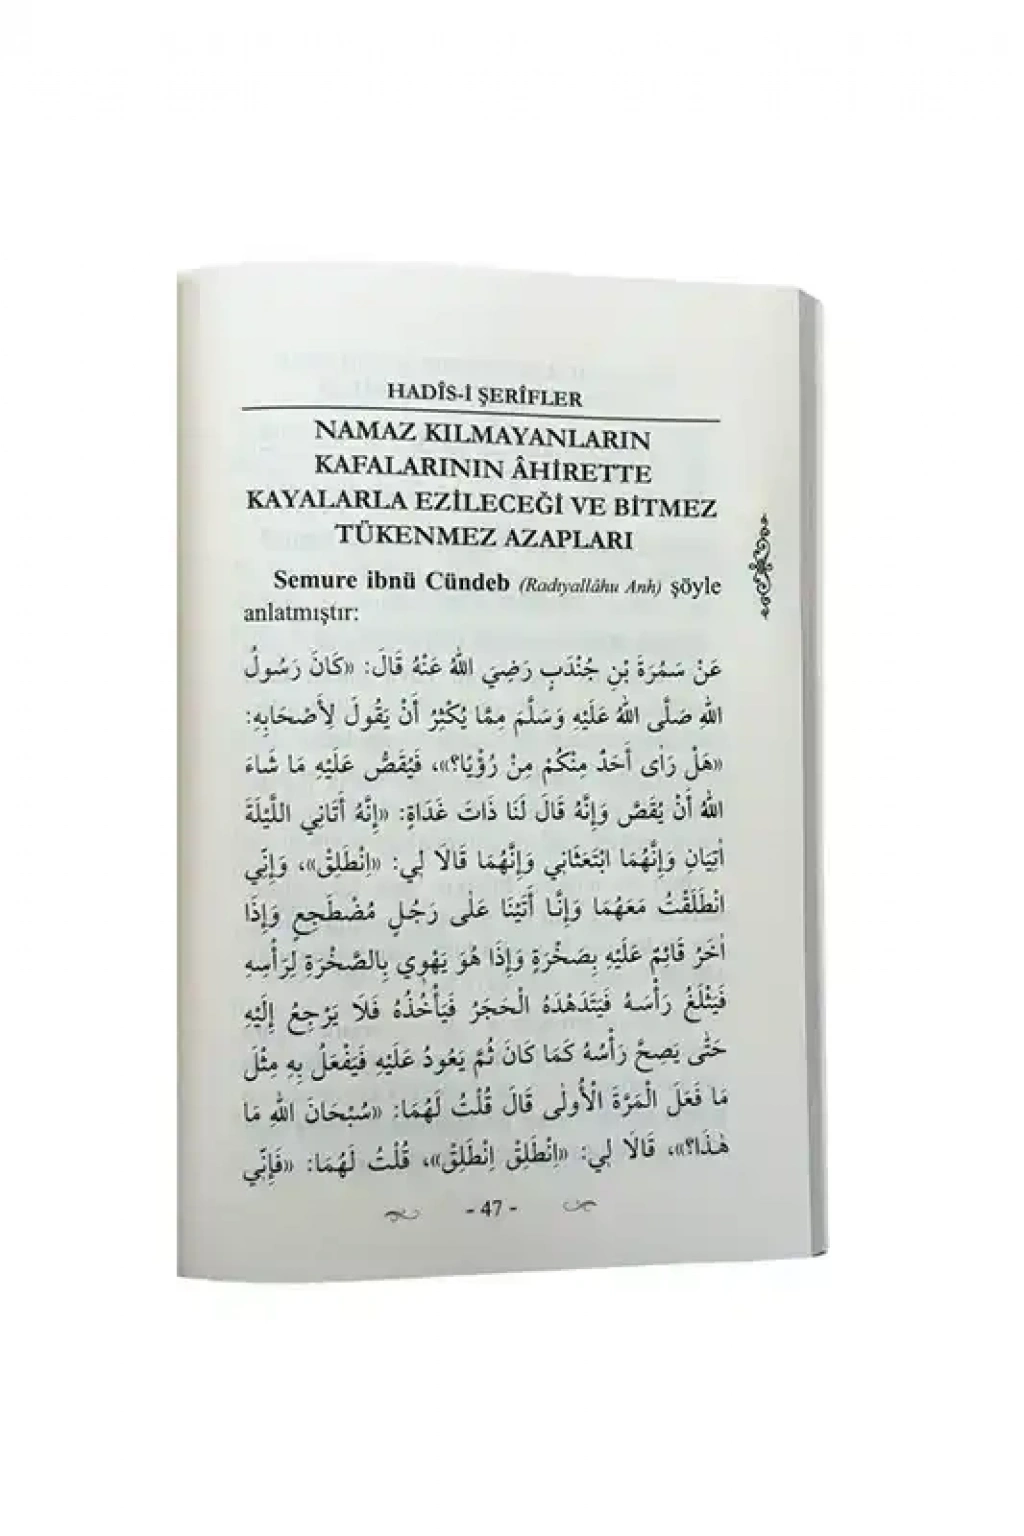 HADÎS-İ ŞERÎFLER
NAMAZ KILMAYANLARIN
KAFALARININ ÂHİRETTE
KAYALARLA EZİLECEĞİ VE BİTMEZ
TÜKENMEZ AZAPLARI
Semure ibnü Cündeb (Radıyallâhu Anh) şöyle
anlatmıştır:
عَنْ سَمُرَةَ بْنِ جُنْدَبٍ رَضِيَ اللّٰهُ عَنْهُ قَالَ: «كَانَ رَسُولُ
اللّٰهِ صَلَّى اللّٰهُ عَلَيْهِ وَسَلَّمَ مِمَّا يُكْثِرُ أَنْ يَقُولَ لِأَصْحَابِهِ:
«هَلْ رَاٰى أَحَدٌ مِنْكُمْ مِنْ رُؤْيَا؟»، فَيُقَصُّ عَلَيْهِ مَا شَاءَ
اللّٰهُ أَنْ يُقَصَّ وَإِنَّهُ قَالَ لَنَا ذَاتَ غَدَاةٍ: «إِنَّهُ أَتَانِي اللَّيْلَةَ
اٰتِيَانِ وَإِنَّهُمَا ابْتَعَثَانِي وَإِنَّهُمَا قَالَا لِي: «اِنْطَلِقْ»، وَإِنِّي
انْطَلَقْتُ مَعَهُمَا وَإِنَّا أَتَيْنَا عَلٰى رَجُلٍ مُضْطَجِعٍ وَإِذَا
اٰخَرُ قَائِمٌ عَلَيْهِ بِصَخْرَةٍ وَإِذَا هُوَ يَهْوِي بِالصَّخْرَةِ لِرَأْسِهِ
فَيَثْلَغُ رَأْسَهُ فَيَتَدَهْدَهُ الْحَجَرُ فَيَأْخُذُهُ فَلَا يَرْجِعُ إِلَيْهِ
حَتّٰى يَصِحَّ رَأْسُهُ كَمَا كَانَ ثُمَّ يَعُودُ عَلَيْهِ فَيَفْعَلُ بِهِ مِثْلَ
مَا فَعَلَ الْمَرَّةَ الْأُولٰى قَالَ قُلْتُ لَهُمَا: «سُبْحَانَ اللّٰهِ مَا
هٰذَا؟»، قَالَا لِي: «اِنْطَلِقْ اِنْطَلِقْ»، قُلْتُ لَهُمَا: «فَإِنِّي
- 47 -